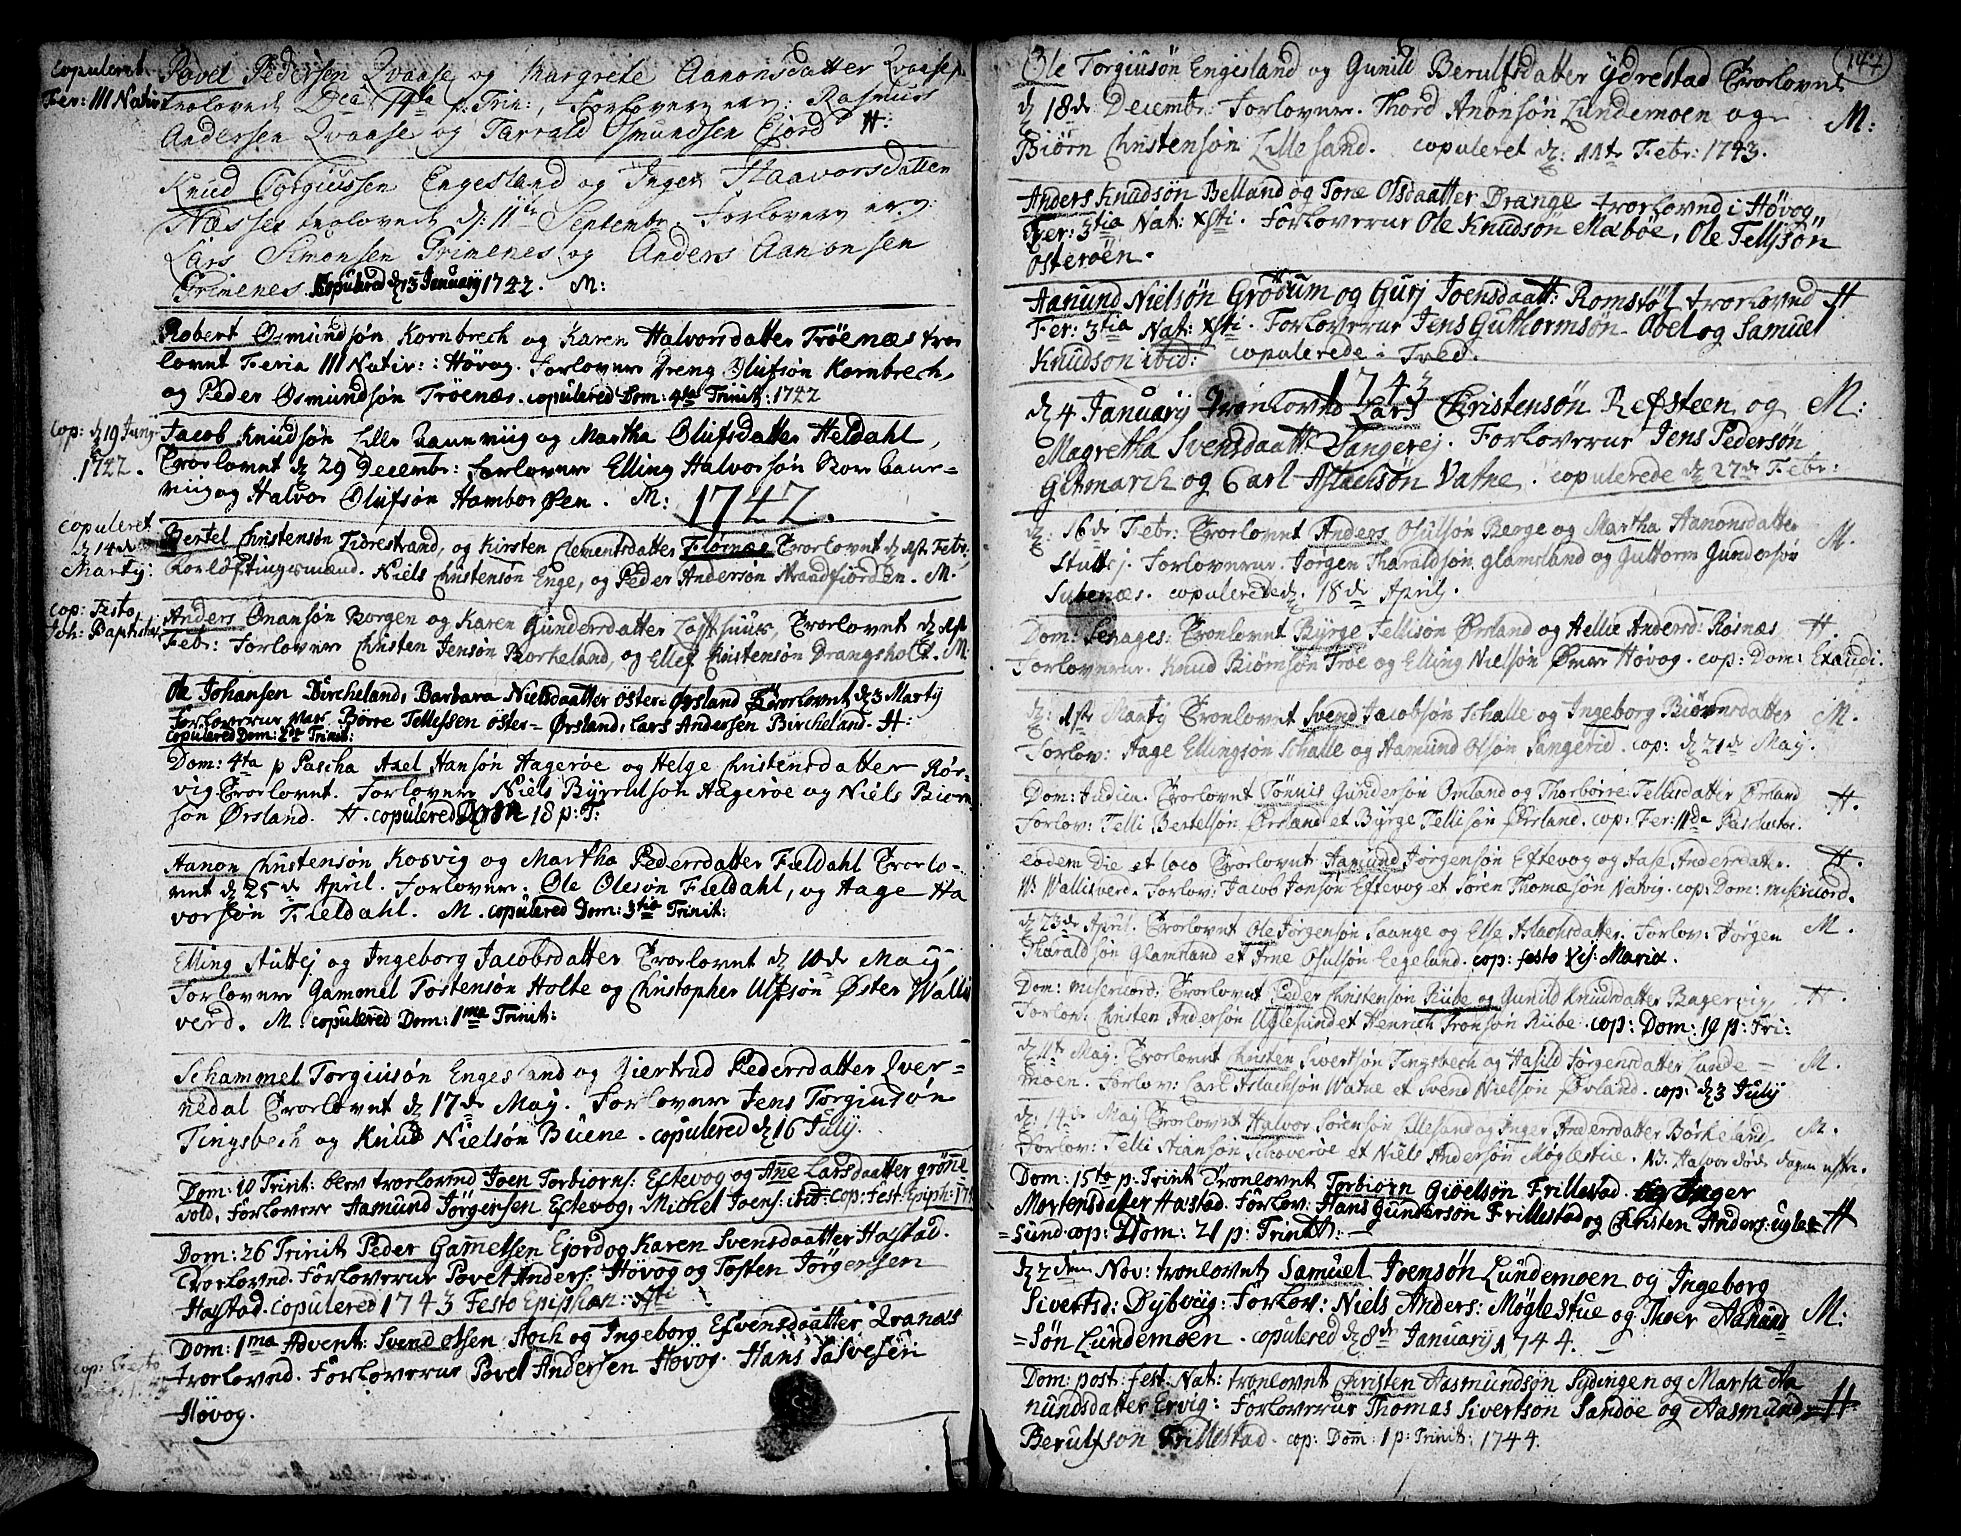 copuleret
Fer: III Nativ:
Povel Pedersen Qvaase og Margrete Aanonsdatter Qvaase
trolovedt Dca 14ta p. Trin:, Forlovern ern: Rasmus
Andersen Qvaase og Tarrald Osmundsen Ejord H:
Knud Torgiussen Engesland og Inger Haavorsdatter
Næsset trolovedt d: 11te Septembr. Forlovern ern:
Lars Simonsen Grimenes og Anders Aanonsen
Grimenes. Copulered d 13 January 1742. M:
Robert Osmundsøn Kornbrech og Karen Halvorsdatter Trøenæs troe
lovnt Feria III Nativ: Høvog. Forlovere Dreng Olufsøn Kornbrech,
og Peder Osmundsøn Trøenæs. copulered Dom: 4ta Trinit: 1742
cop: d 19 Junij
1742.
Jacob Knudsøn Lille og Martha Olufsdatter Heldahl,
Troelovnt d 29 Decembr: Forlovere Elling Halvorsøn
og Halvor Olufsøn Hamborøen. M:
1742.
copuleret
d 14de
Martij:
Bertel Christensøn Tidrestrand, og Kirsten Clementsdatter Troelovnt d 1ste Febr:
Forløftingsmænd. Niels Christensøn Enge, og Peder Andersøn Strandfiorden. M.
cop: Festo
Joh: Baptistæ
Anders Onansøn Borgen og Karen Gundersdatter Lofthuus, Troelovnt d 1ste
Febr: Forlovere Christen Jensøn Borkeland, og Ellef Christensøn Drangsholt. M.
Ole Johansen Bircheland, Barbara Nielsdaatter Øster-Ørsland Troelovnt d 3 Martij
Forloverne var Børre Tellissen Øster-Ørsland, Lars Andersen Bircheland. H
copulered Dom: 2dr Trinit:
Dom: 4ta p Pascha Axel Hansøn Hagerøe og Helge Christensdatter Rør-
vig Troelovnt. Forlovere Niels Hagerøe og Niels Biørn
søn Ørsland. H. copulered Dom 18 p: T:
Aanon Christensøn Kosvig og Martha Pedersdatter Fieldahl Troelo-
vnt d 25de April. Forlovere. Ole Olesøn Fieldahl, og Aage Ha
vorsøn Fieldahl. M. copulered Dom: 3tia Trinit:
Elling Stuttej og Ingeborg Jacobsdatter Troelovnt d 10de May,
Forlovere Gammel Tostensøn Holte og Christopher Ulfsøn Øster Walli
verd. M. copulered Dom: 1ma Trinit:
Schammel Torgiusøn Engesland og Giertrud Pedersdatter Qver-
nedal Troelovnt d 17de Maj. Forlovere Jens Torgiusøn
Tingsbech og Knud Nielsøn Buene. copulered d 16 July.
Dom: 10 Trinit: blev troelovnd Joen Torbiorns: Eftevog og Anne Larsdaatter grønne
vold, Forlovere Aamund Jørgensen Eftevog, Michel Joens: ibid: cop: fest: Epiph:
Dom: 26 Trinit: Peder Gammelsen Ejord og Karen Svensdaatter Hastad.
Troelovnd. Forloverne Povel Anders: Høvog og Tosten Jørgensen
Hastad. copulered 1743 Festo Epiphan: Xsti
cop: Festo
Dom: 1ma Advent: Svend Olsen Stoch og Ingeborg Efvensdaatter Qvanæs
troelovnd. Forloverne Povel Andersen Høvog. Hans Salvesen
Høvog.
Ole Torgiusøn Engisland og Gunild Berulfsdatter Ydrestad Troelovnt
d 18de Decembr: Forlovere. Thord Anonsøn Lundemoen og
Biørn Christensøn Lillesand. copuleret d: 11te Febr: 1743. M:
Anders Knudsøn Belland og Tone Olsdaatter Drange troelovnd i Høvog
Fer: 3tia Nat: Xsti. Forloverne Ole Knudsøn Mæbøe, Ole Tellssøn
Osterøen.
Aamund Nielsøn Grødum og Gurj Joensdaatt: Romstøl troelovnd H
Fer: 3tia Nat: Xsti. Forloverne Jens Guthormsøn Obel og Samuel
Knudsøn ibid: copulerede i Tved.
1743
d 4 Januarij Troelovnd Lars Christensøn Refsteen og M:
Magretha Svensdaatt: Sangerej. Forloverne Jens Pedersøn
Gitmarch og Carl Aslachsøn Vatne. copulerede d 27de Febr:
d: 16de Febr: Troelovnt Anders Osulsøn Berge og Martha Aanonsdatter M.
Stuttej. Forloverne. Jørgen Tharaldsøn Glamsland og Guttorm Gundersøn
Subenæs. copulerede d: 18de April.
Dom: Sexages: Troelovnt Byrge Tellisøn Ørsland og Hellie Andersd: Rosnæs H.
Forloverne. Knud Biørnsøn Troe og Elling Nielsøn Øvre Høvog. cop: Dom: Exaudi.
d: 1ste Martij Troelovnt Svend Jacobsøn Schalle og Ingeborg Biørnsdatter M.
Forlov: Aage Ellingsøn Schalle og Aamund Olsøn Sangerid. cop: d 21de Maij.
Dom: Judica. Troelovnt Tønnis Gundersøn Omland og Thorborre Tellisdatter Ørsland H.
Forlov: Telli Bertelsøn Ørsland et Byrge Tellisøn Ørsland. cop: Fer: IIda Paschatos.
eodem die et loco Troelovnt Aamund Jørgensøn Eftevog og Aase Andersdatter H.
W: Walliverd. Forlov: Jacob Jonsøn Eftevog et Søren Thomæsøn Natvig. cop: Dom: misericord.
d 23de April. Troelovnt Ole Jørgensøn Saange og Else Aslachsdatter. Forlov: Jørgen M.
Tharaldsøn Glamsland et Arne Osulsøn Eegeland. cop: festo Vis: Mariæ.
Dom: misericord: Troelovnt Peder Christensøn Riibe og Gunild Knudsdatter Bagervig, H.
Forlov: Christen Andersøn Uglesund et Henrich Tronsøn Riibe. cop: Dom: 19 p: Tri:
d 11te Maj: Troelovnt Christen Sivertsøn Tingsbech og Hasild Jørgensdatter Lunde= M.
moen. Forlov: Carl Aslachsøn Watne et Svend Nielsøn Øvland. cop: d 3 Julij
d: 14de Maij Troelovnt Halvor Sørensøn Lillesand og Inger Andersdatter Børkeland, M.
Forlov: Telli Stiansøn et Niels Andersøn Møglestue. NB. Halvor døde dagen eftr.
Dom: 15ta p: Trinit Troelovnt Torbiørn Giøelsøn Frillestad. og Inger
Mortensdatter Hastad. Forlov: Hans Gundersøn Frillestad og Christen Anders: Ugle= H
=sund cop: Dom: 21 p: Trinit: —
d 2den Nov: troelovnt Samuel Joensøn Lundemoen og Ingeborg
Sivertsd: Dybvig: Forlov: Niels Anders: Møglestue og Thoer Aamund M:
=søn Lundemoen. copulered d 8de Januarij 1744. —
Dom: post: fest: Nat: troelovnt Christen Aasmundsøn Sydingen og Marta Aa
nundsdatter Ervig: Forloverne Thomas Sivertsøn Sandøe og Aasmund H
Berulfsøn Frillestad. cop: Dom: 1 p: Trinit: 1744.